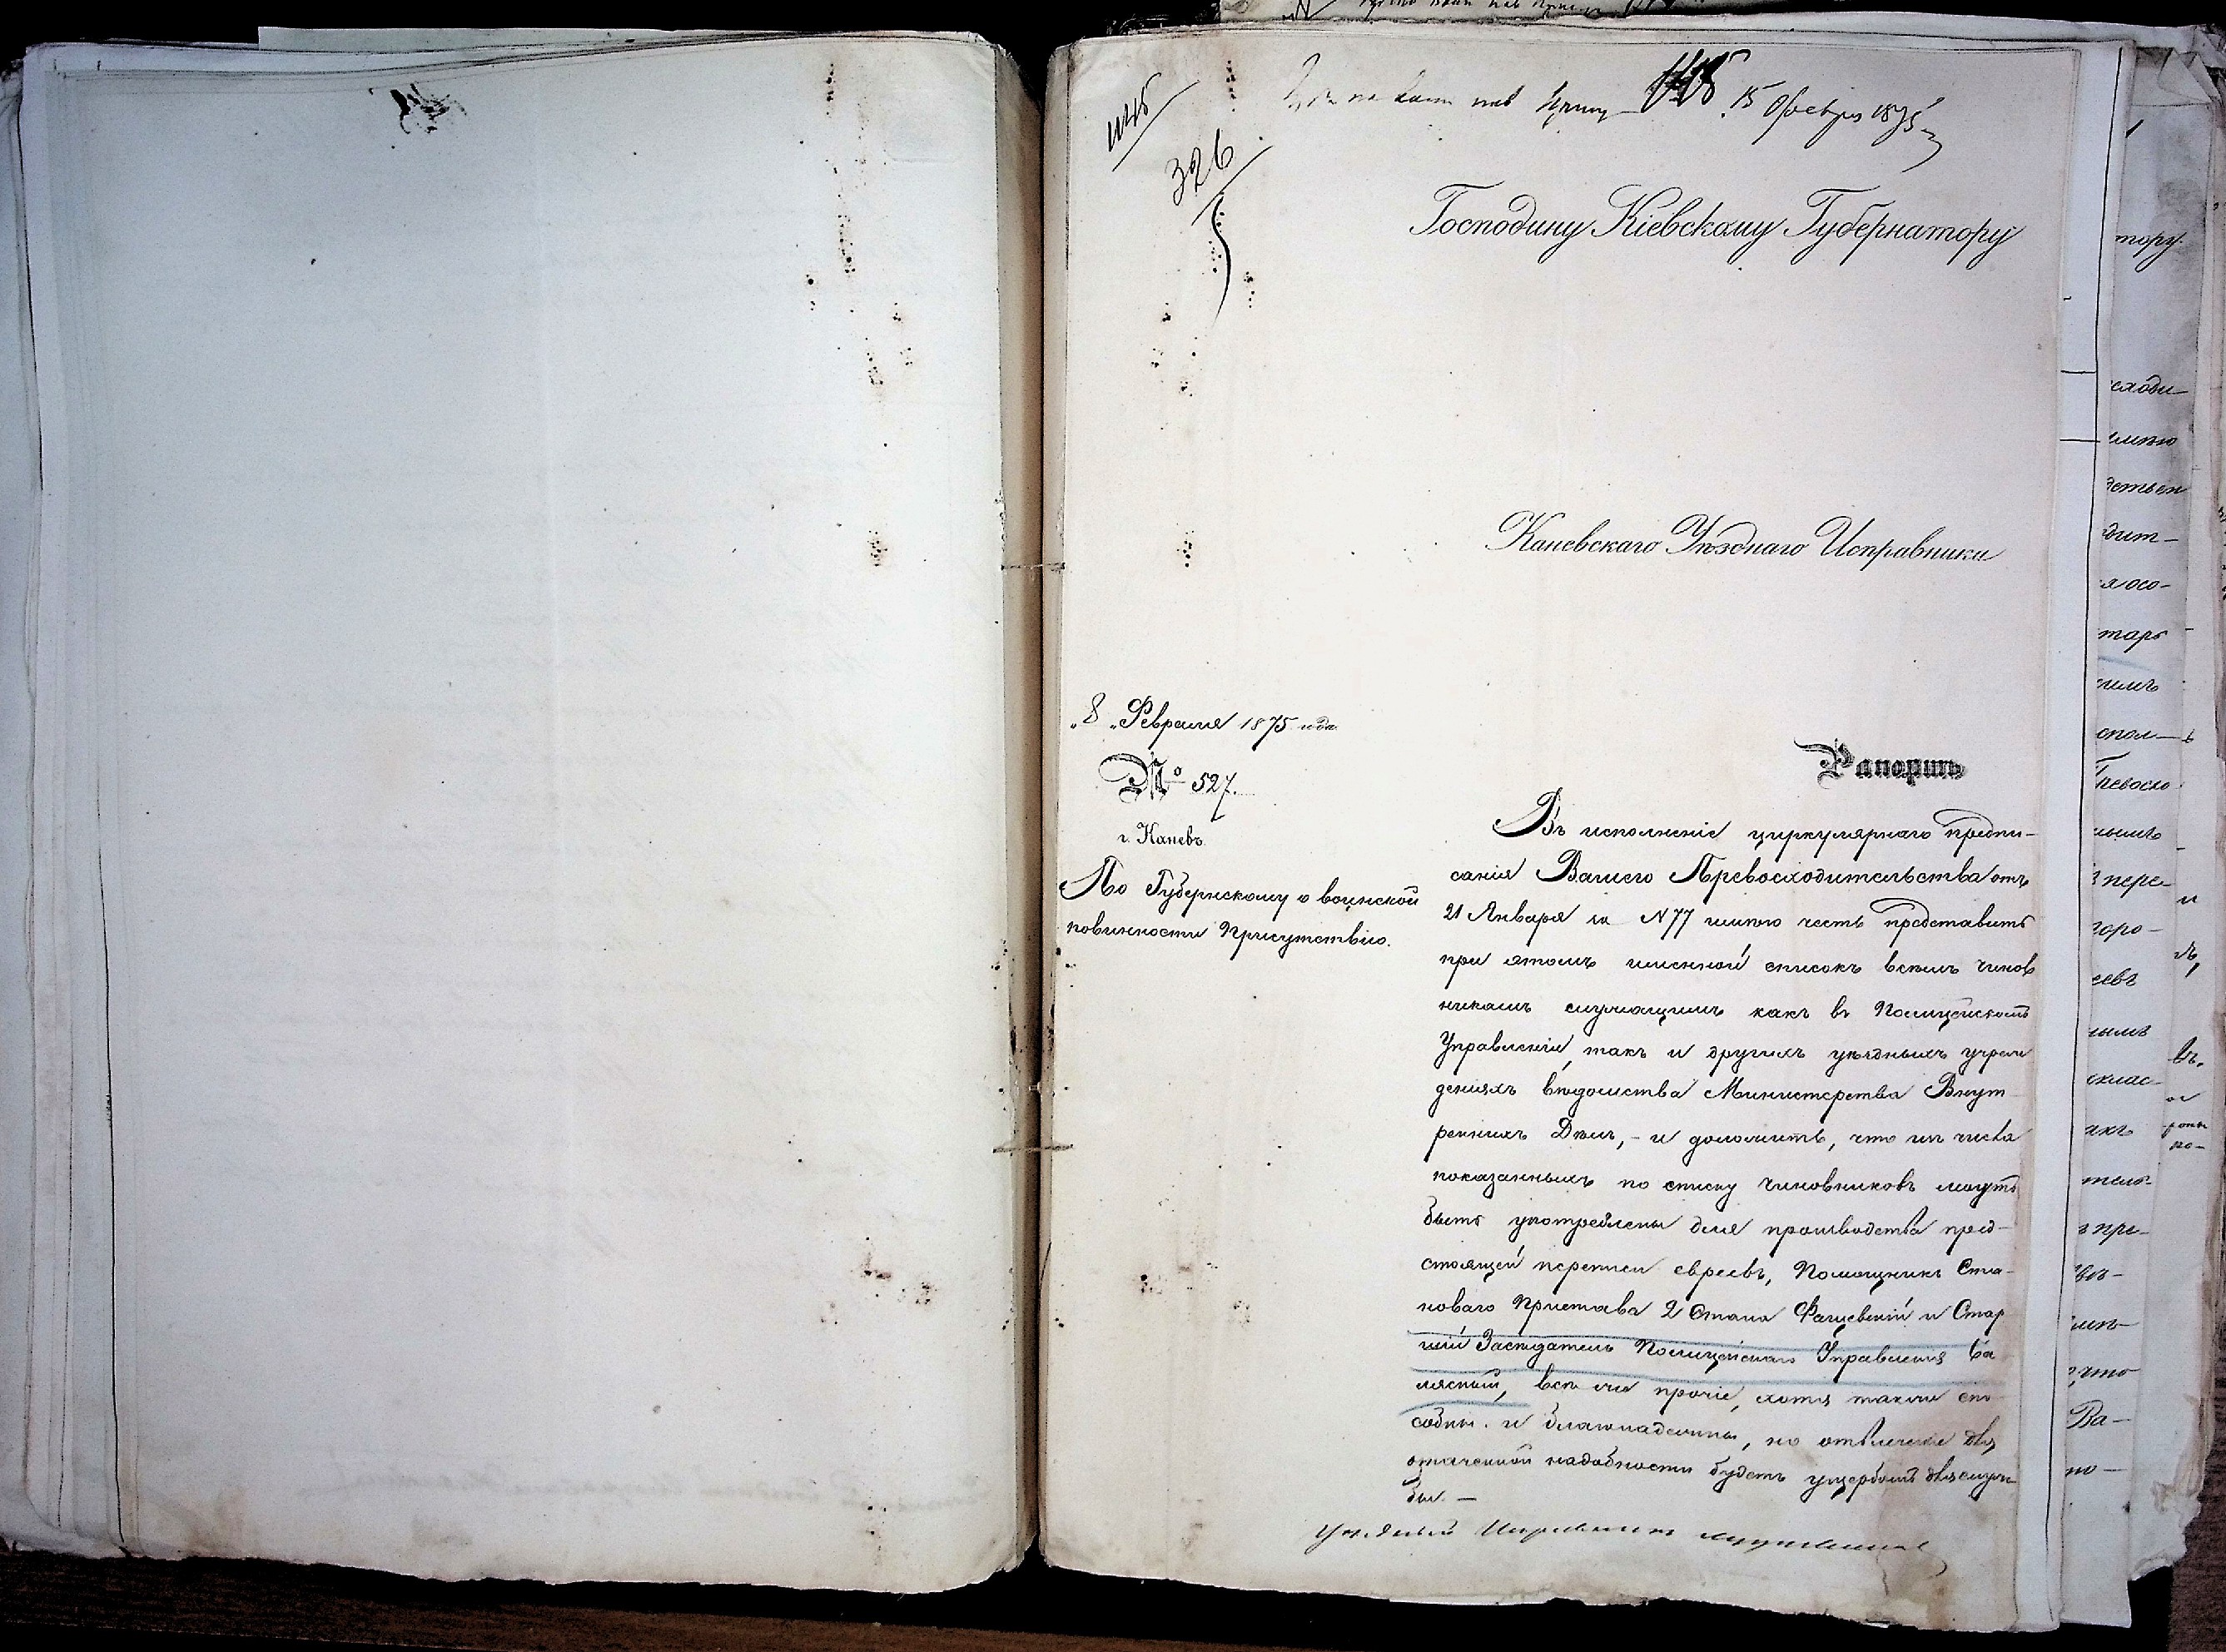 1145
15 Февраля 1875
326
Господину Кіевскому Губернатору
Каневскаго Уѣзднаго Исправника
„8„ Февраля 1875 года
№ 527.
г. Каневъ.
По Губернскому о воинской
повинности Присутствію.
Рапортъ
Въ исполненіе циркулярнаго предпи-
санія Вашего Превосходительства отъ
21 Января за N 77 имѣю честь представить
при этомъ именной списокъ всѣмъ чинов
никамъ служащимъ какъ въ Полицейскомъ
Управленіи, такъ и другихъ уѣздныхъ учреж
деніяхъ вѣдомства Министерства Внут
реннихъ Дѣлъ, - и доложить, что изъ числа
показанныхъ по списку чиновниковъ могутъ
быть употреблены для производства пред-
стоящей переписи евреевъ, Помощникъ Ста-
новаго Пристава 2 Стана и Стар
шій Засѣдатель Полицейскаго Управленія Ба
лясный, всѣ же прочіе, хотя также спо
собны и благонадежны, но отвлеченіе для
означенной надобности будетъ ущербомъ для служ
бы. —
Уѣздный Исправникъ